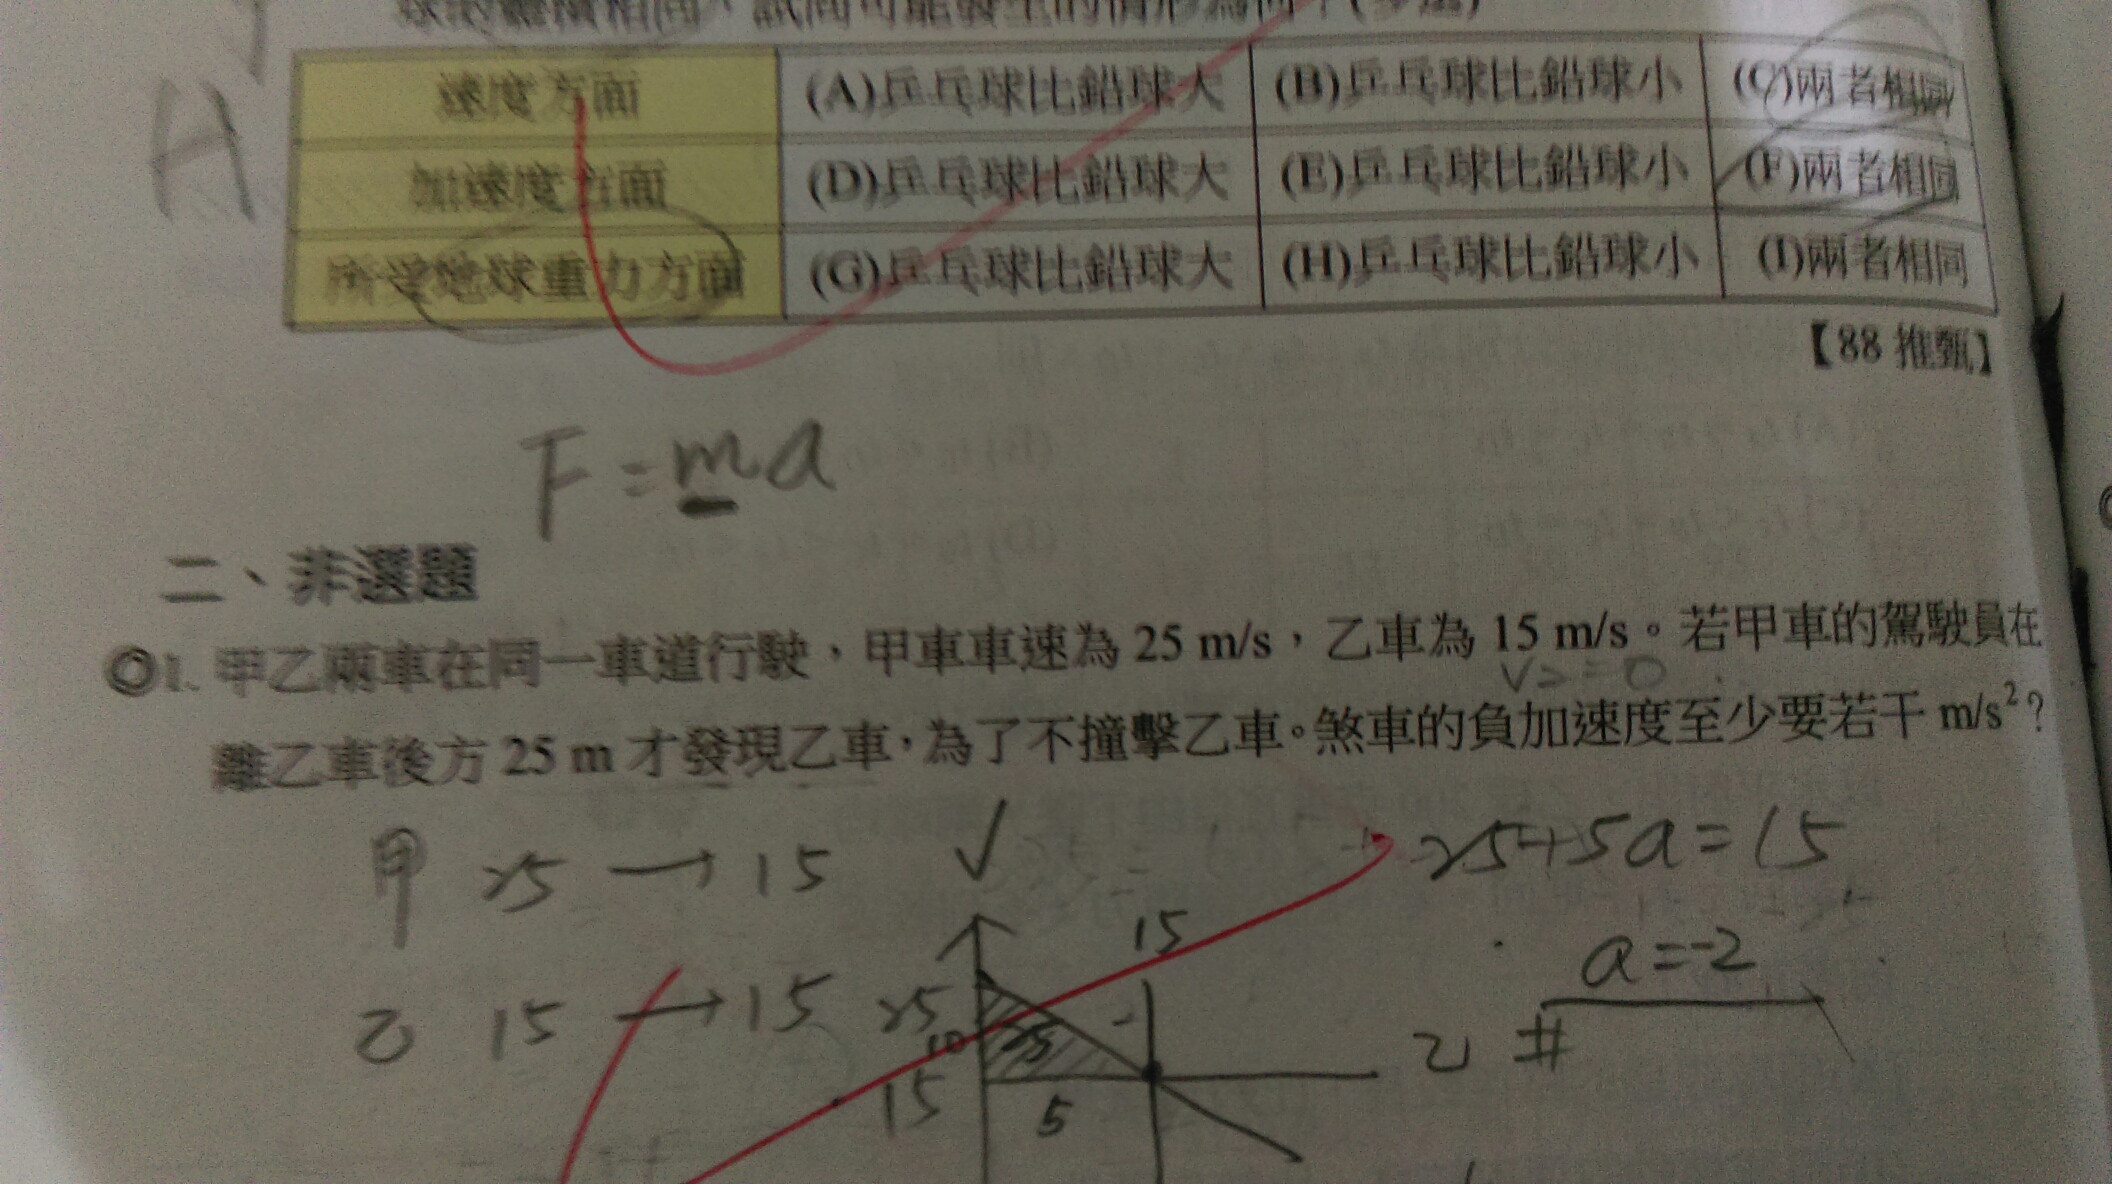 球的體積相同，試問可能發生的情形為何？(多選)
H
速度方面 (A)乒乓球比鉛球大 (B)乒乓球比鉛球小 (C)兩者相同
加速度方面 (D)乒乓球比鉛球大 (E)乒乓球比鉛球小 (F)兩者相同
所受地球重力方面 (G)乒乓球比鉛球大 (H)乒乓球比鉛球小 (I)兩者相同
【88 推甄】
F=ma
二、非選題
◎1. 甲乙兩車在同一車道行駛，甲車車速為 25 m/s，乙車為 15 m/s。若甲車的駕駛員在
離乙車後方 25 m 才發現乙車，為了不撞擊乙車。煞車的負加速度至少要若干 m/s²？
甲 25 → 15 V 25+5a=15
15
a=-2
乙 15 → 15 25
10 25
乙 #
15 5